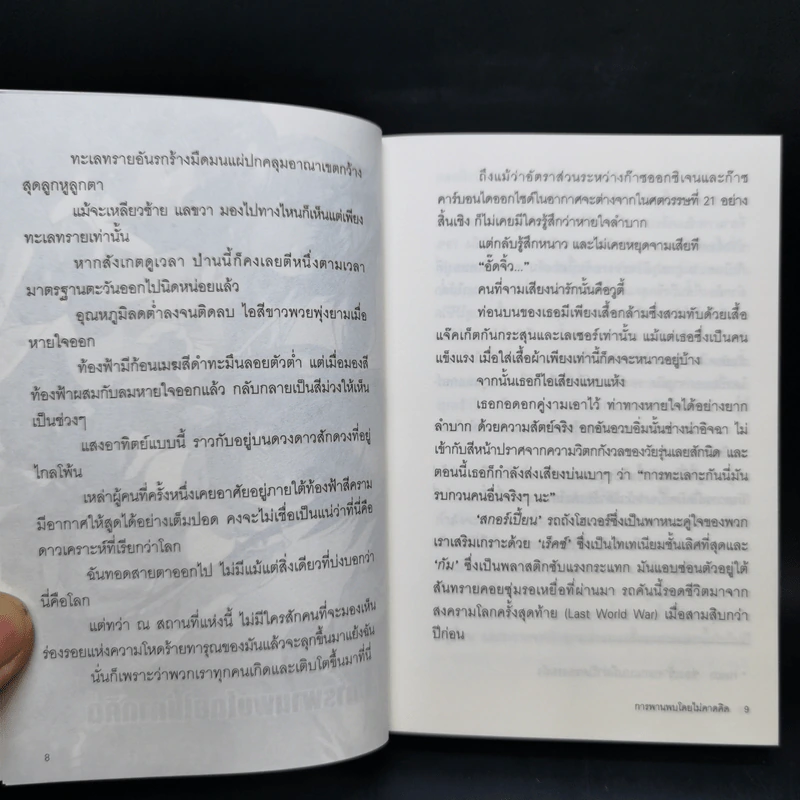 ทะเลทรายอันรกร้างมืดมนแผ่ปกคลุมอาณาเขตกว้าง
สุดลูกหูลูกตา
แม้จะเหลียวซ้าย แลขวา มองไปทางไหนก็เห็นแต่เพียง
ทะเลทรายเท่านั้น
หากสังเกตดูเวลา ป่านนี้ก็คงเลยตีหนึ่งตามเวลา
มาตรฐานตะวันออกไปนิดหน่อยแล้ว
อุณหภูมิลดต่ำลงจนติดลบ ไอสีขาวพวยพุ่งยามเมื่อ
หายใจออก
ท้องฟ้ามีก้อนเมฆสีดำทะมึนลอยตัวต่ำ แต่เมื่อมองสี
ท้องฟ้าผสมกับลมหายใจออกแล้ว กลับกลายเป็นสีม่วงให้เห็น
เป็นช่วงๆ
แสงอาทิตย์แบบนี้ ราวกับอยู่บนดวงดาวสักดวงที่อยู่
ไกลโพ้น
เหล่าผู้คนที่ครั้งหนึ่งเคยอาศัยอยู่ภายใต้ท้องฟ้าสีคราม
มีอากาศให้สูดได้อย่างเต็มปอด คงจะไม่เชื่อเป็นแน่ว่าที่นี่คือ
ดาวเคราะห์ที่เรียกว่าโลก
ฉันทอดสายตาออกไป ไม่มีแม้แต่สิ่งเดียวที่บ่งบอกว่า
นี่คือโลก
แต่ทว่า ณ สถานที่แห่งนี้ ไม่มีใครสักคนที่จะมองเห็น
ร่องรอยแห่งความโหดร้ายทารุณของมันแล้วจะลุกขึ้นมาแย้งฉัน
นั่นก็เพราะว่าพวกเราทุกคนเกิดและเติบโตขึ้นมาที่นี่
8
ถึงแม้ว่าอัตราส่วนระหว่างก๊าซออกซิเจนและก๊าซ
คาร์บอนไดออกไซด์ในอากาศจะต่างจากในศตวรรษที่ 21 อย่าง
สิ้นเชิง ก็ไม่เคยมีใครรู้สึกว่าหายใจลำบาก
แต่กลับรู้สึกหนาว และไม่เคยหยุดจามเสียที
“อั๊ดจิ้ว...”
คนที่จามเสียงน่ารักนั้นคือวูตี้
ท่อนบนของเธอมีเพียงเสื้อกล้ามซึ่งสวมทับด้วยเสื้อ
แจ๊คเก็ตกันกระสุนและเลเซอร์เท่านั้น แม้แต่เธอซึ่งเป็นคน
แข็งแรง เมื่อใส่เสื้อผ้าเพียงเท่านี้ก็คงจะหนาวอยู่บ้าง
จากนั้นเธอก็ไอเสียงแหบแห้ง
เธอกอดอกคู่งามเอาไว้ ท่าทางหายใจได้อย่างยาก
ลำบาก ด้วยความสัตย์จริง อกอันอวบอิ่มนั้นช่างน่าอิจฉา ไม่
เข้ากับสีหน้าปราศจากความวิตกกังวลของวัยรุ่นเลยสักนิด และ
ตอนนี้เธอก็กำลังส่งเสียงบ่นเบาๆ ว่า “การทะเลาะกันนี่มัน
รบกวนคนอื่นจริงๆ นะ”
‘สกอร์เปี้ยน’ รถถังโฮเวอร์ซึ่งเป็นพาหนะคู่ใจของพวก
เราเสริมเกราะด้วย ‘เร็คซ์’ ซึ่งเป็นไทเทเนียมชั้นเลิศที่สุดและ
‘กัม’ ซึ่งเป็นพลาสติกซับแรงกระแทก มันแอบซ่อนตัวอยู่ใต้
สันทรายคอยซุ่มรอเหยื่อที่ผ่านมา รถคันนี้รอดชีวิตมาจาก
สงครามโลกครั้งสุดท้าย (Last World War) เมื่อสามสิบกว่า
ปีก่อน
การพานพบโดยไม่คาดคิด 9